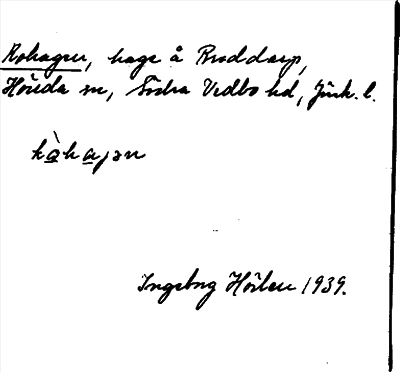 Kohagen, hage å Bruddarp,
Höreda sn, Södra Vedbo hd, Jönk. l.
kòhajən
Ingeborg Hörlen 1939.